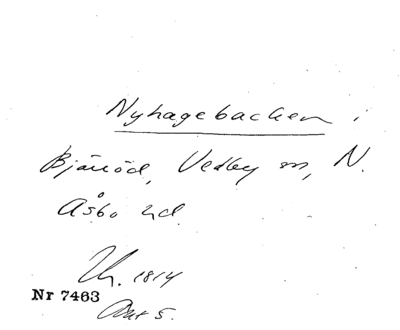 Nyhagebacken i
Bjäröd, Vedby sn, N.
Åsbo hd.
1814
Nr 7463
5.